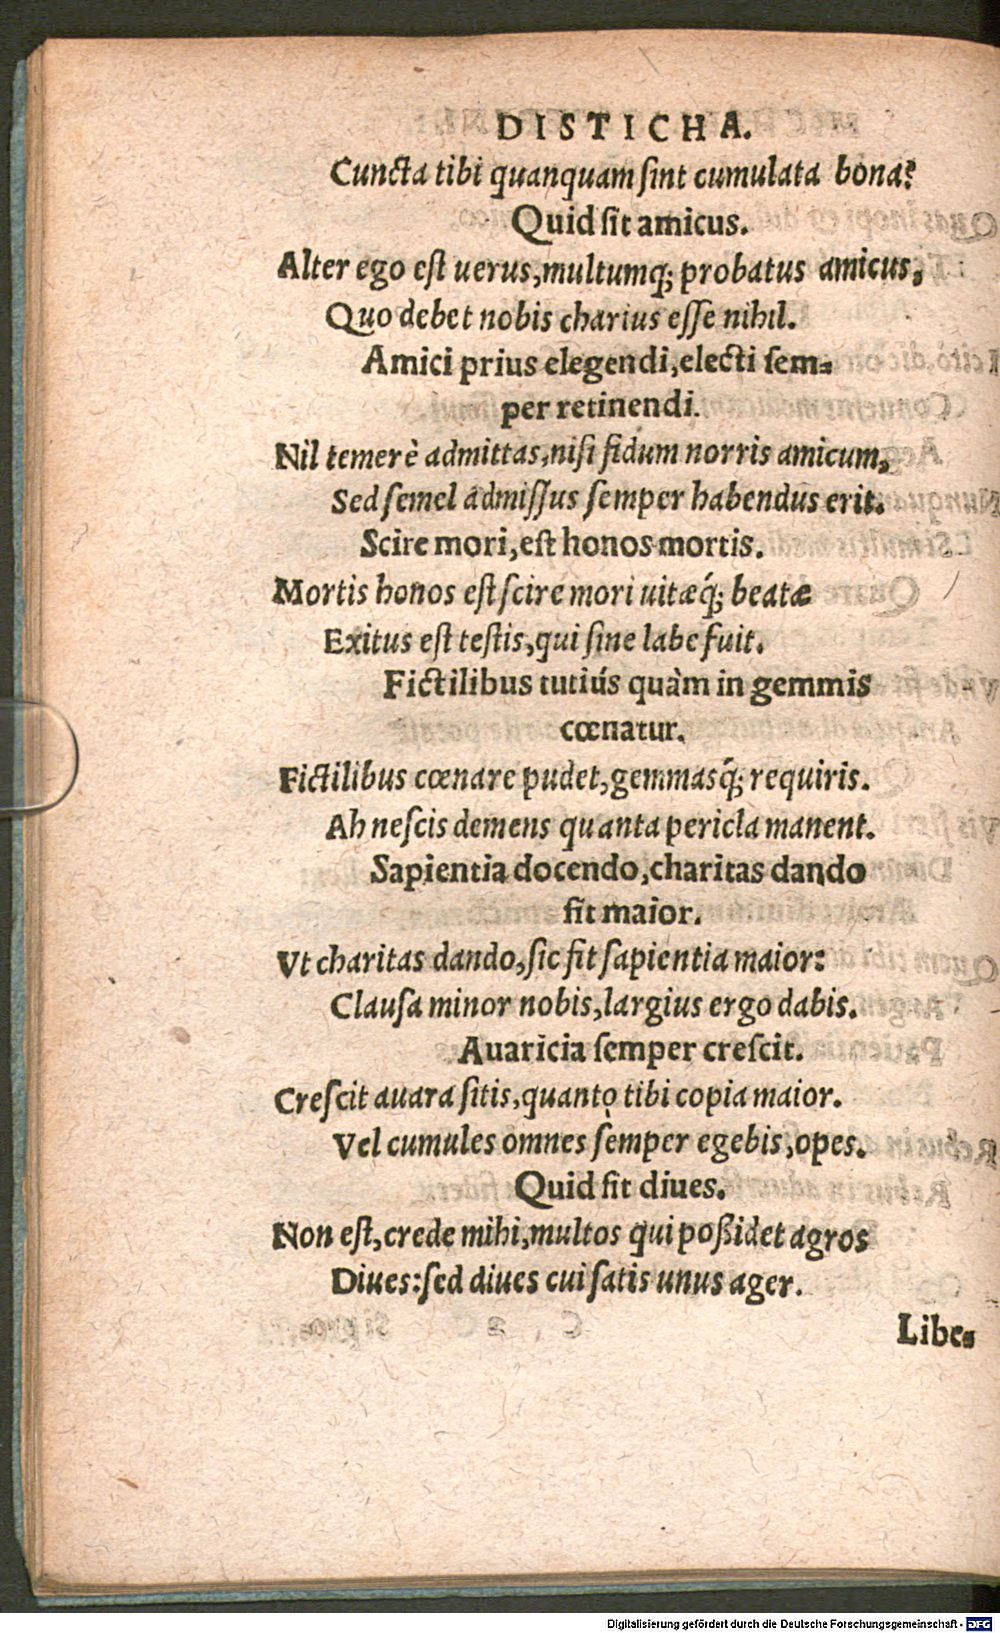 DISTICHA.
Cuncta tibi quanquam ſint cumulata bona?
Quid ſit amicus.
Alter ego eſt uerus, multumq; probatus amicus,
Quo debet nobis charius eſſe nihil.
Amici prius elegendi, electi ſem-
per retinendi.
Nil temerè admittas, niſi fidum norris amicum,
Sed ſemel admiſſus ſemper habendus erit.
Scire mori, est honos mortis.
Mortis honos eſt ſcire mori uitæq́; beatæ
Exitus eſt teſtis, qui ſine labe fuit.
Fictilibus tutiús quàm in gemmis
cœnatur.
Fictilibus cœnare pudet, gemmasq́; requiris.
Ah neſcis demens quanta pericla manent.
Sapientia docendo, charitas dando
fit maior.
Vt charitas dando, ſic fit ſapientia maior:
Clauſa minor nobis, largius ergo dabis.
Auaricia ſemper creſcit.
Creſcit auara ſitis, quanto tibi copia maior.
Vel cumules omnes ſemper egebis, opes.
Quid ſit diues.
Non eſt, crede mihi, multos qui poßidet agros
Diues: ſed diues cui ſatis unus ager.
Libe-
Digitalisierung gefördert durch die Deutsche Forschungsgemeinschaft - DFG